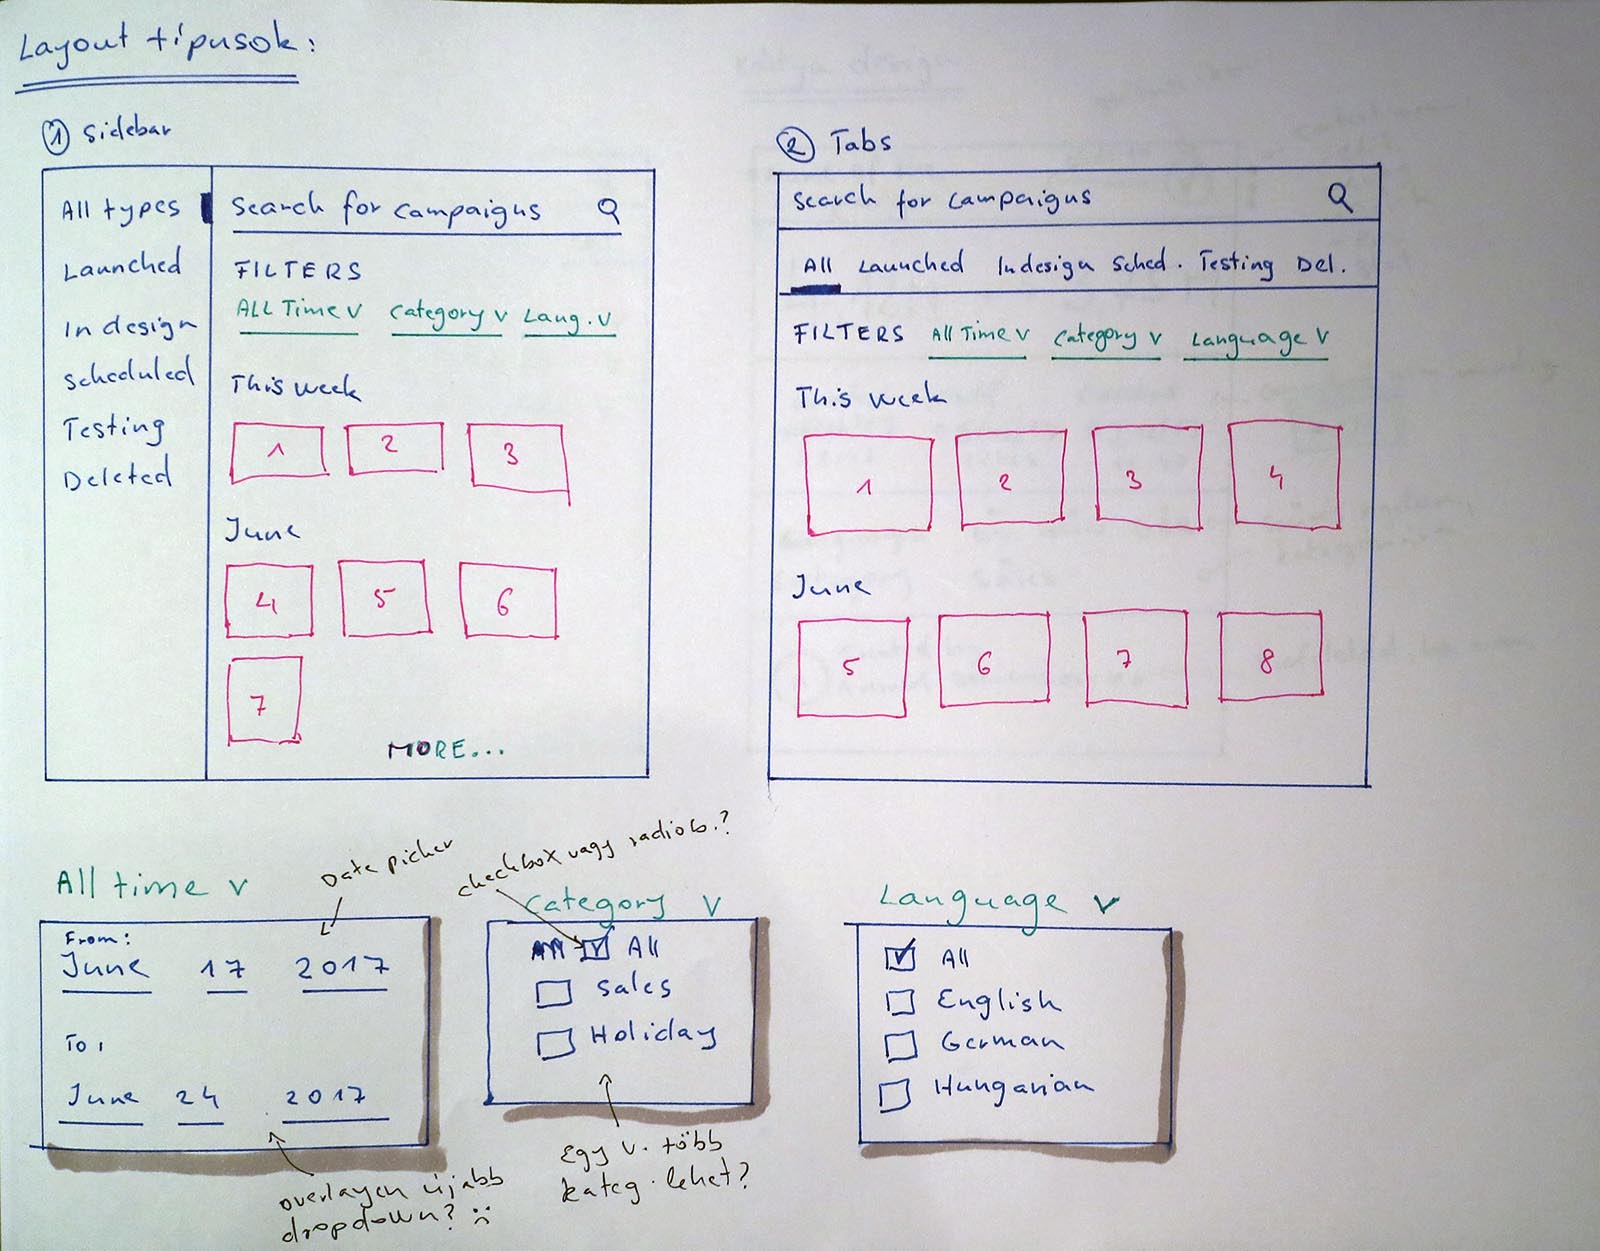 Layout típusok:
1 Sidebar
All types
Launched
In design
Scheduled
Testing
Deleted
Search for campaigns
FILTERS
All Time v Category v Lang. v
This week
1 2 3
June
4 5 6
7
MORE...
2 Tabs
Search for campaigns
All Launched In design Sched. Testing Del.
FILTERS All Time v Category v Language v
This week
1 2 3 4
June
5 6 7 8
All time v
Date picker
From:
June 17 2017
To:
June 24 2017
overlayen újabb
dropdown? :(
checkbox vagy radiob.?
Category v
All
Sales
Holiday
Egy v. több
kateg. lehet?
Language v
All
English
German
Hungarian